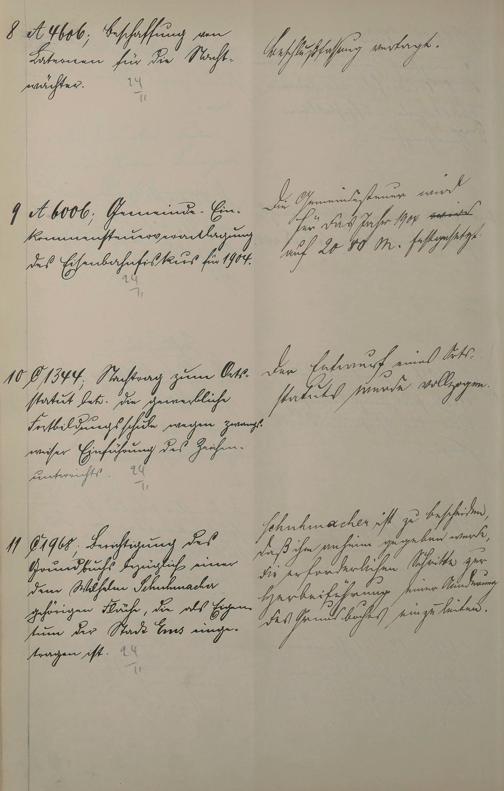 8 A 4606; Beschaffung von
Laternen für die Nacht-
wächter. 24/11
Beschlußfassung vertagt.
9 A 6006; Gemeinde-Ein-
kommensteuerveranlagung
des Eisenbahnfiskus für 1904.
24/11
Die Gemeindesteuer wird
für das Jahr 1904 wird
auf 20 80 M. festgesetzt
10 C 1344; Nachtrag zum Orts-
statut betr. die gewerbliche
Fortbildungsschule wegen zwangs-
weiser Einführung des Zeichen-
unterrichts. 24/11
Der Entwurf eines Orts-
statuts wurde vollzogen.
11 C 1968; Berichtigung des
Grundbuchs bezüglich einer
dem Wilhelm Schuhmacher
gehörigen Fläche, die als Eigen-
tum der Stadt Ems einge-
tragen ist. 24/11
Schuhmacher ist zu bescheiden,
daß ihm anheim gegeben werde,
die erforderlichen Schritte zur
Herbeiführung einer Änderung
des Grundbuches einzuleiten.